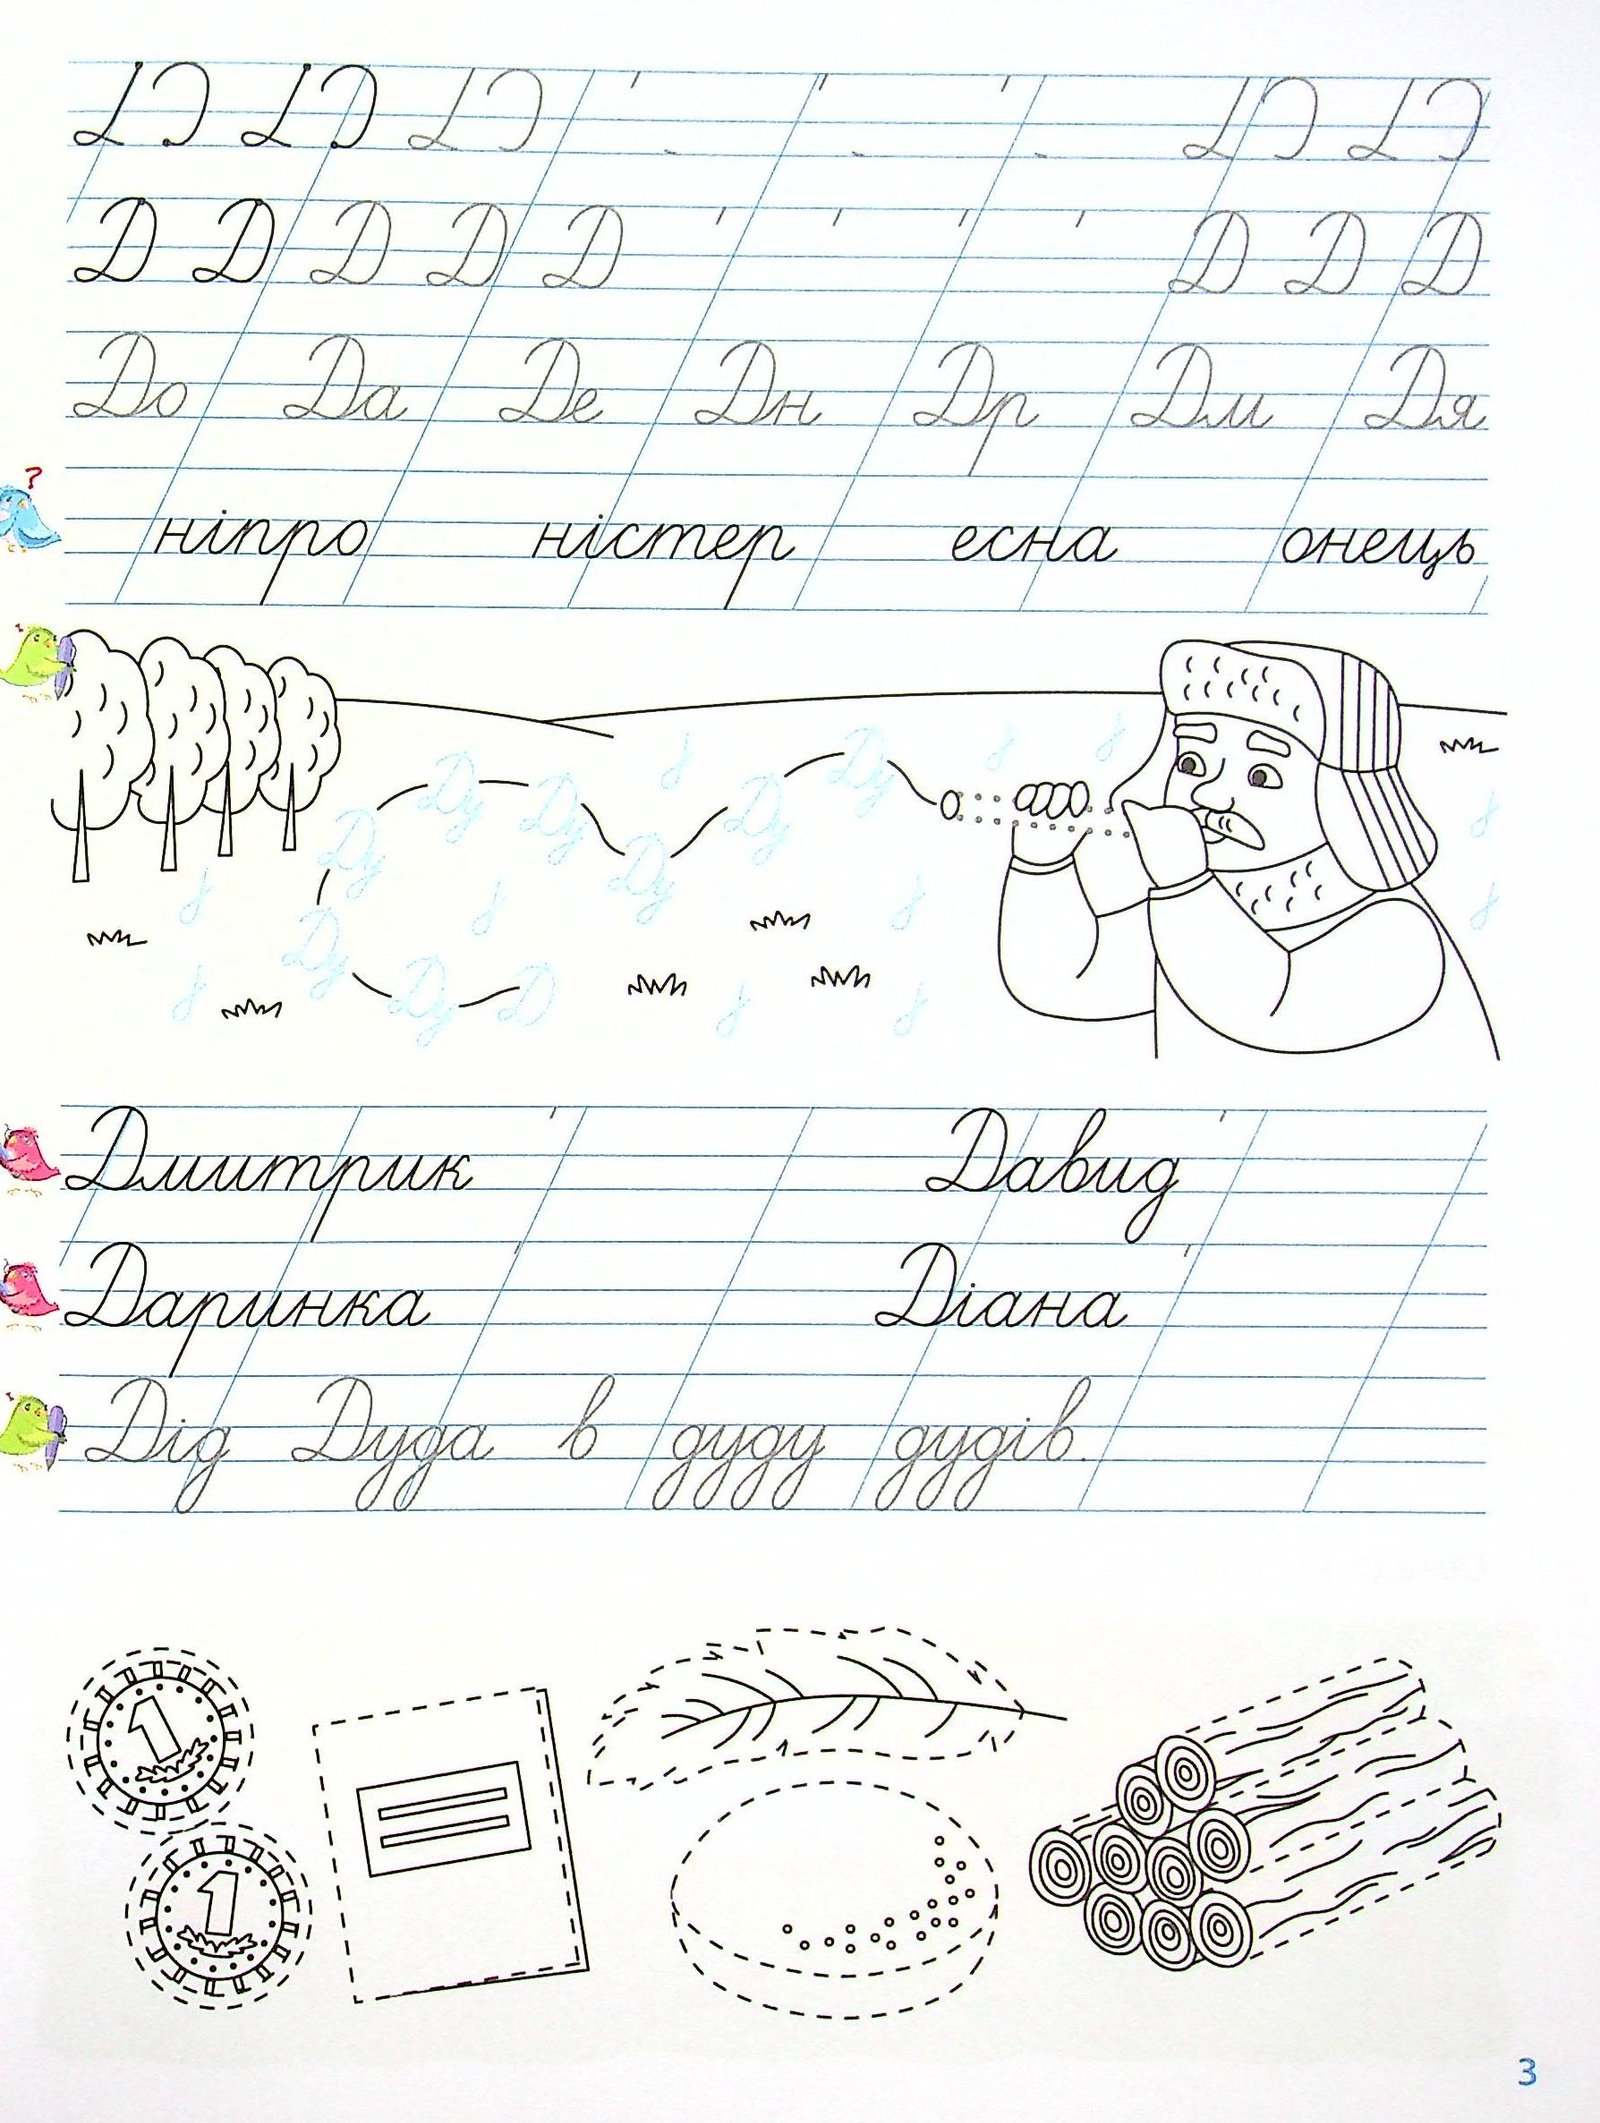 Д Д Д Д Д Д Д Д
До Да Де Дн Др Дм Дя
?
ніпро ністер есна онець
Ду Ду Ду Ду Ду Ду Ду Ду Д
Дмитрик Давид
Даринка Діана
Дід Дуда в дуду дудів.
1
1
3